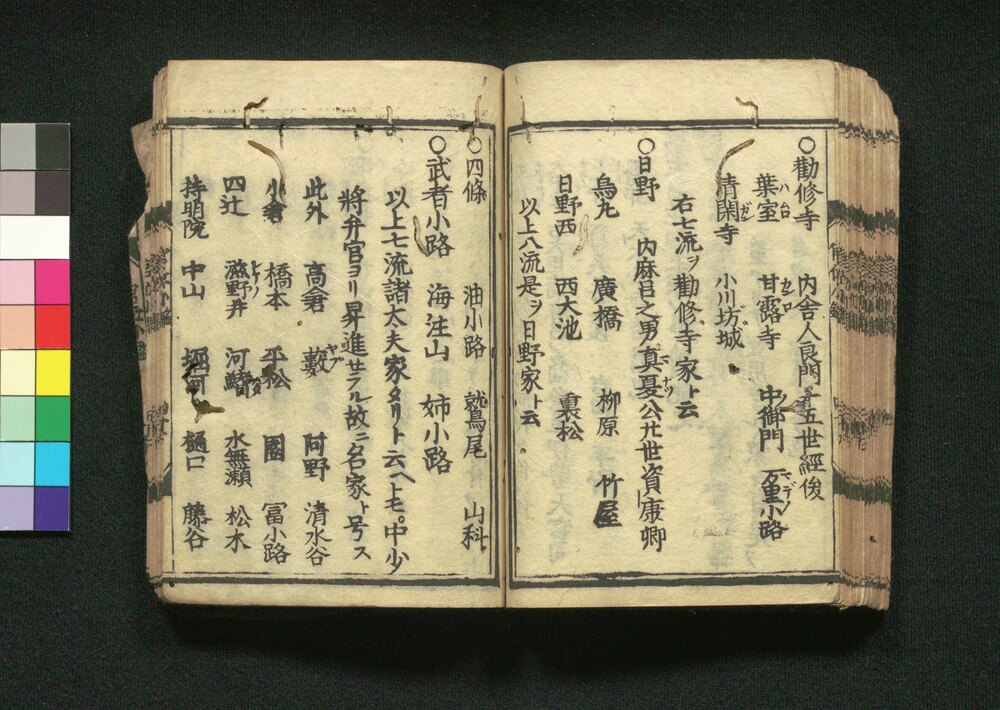 ○勸修寺 内舎人良門五世經俊
葉室ハムロ 甘露寺カンロ 中御門 万里小路マデノ
清閑寺ガン 小川坊城
右七流ヲ勸修寺家ト云
○日野 内麻呂之男真夏ナツ公九世資康卿
烏丸 廣橋 柳原 竹屋
日野西 西大池 裏松
以上八流是ヲ日野家ト云
○四條 油小路 鷲尾 山科
○武者小路 海注山 姉小路
以上七流諸太夫家タリト云ヘトモ。中少
將弁官ヨリ昇進セラル故ニ名家ト号ス
此外 高倉 藪ヤブ 阿野 清水谷
小倉 橋本 平松 園 冨小路
四辻 滋野井 河鰭 水無瀬 松木
持明院 中山 堀河 樋口 藤谷